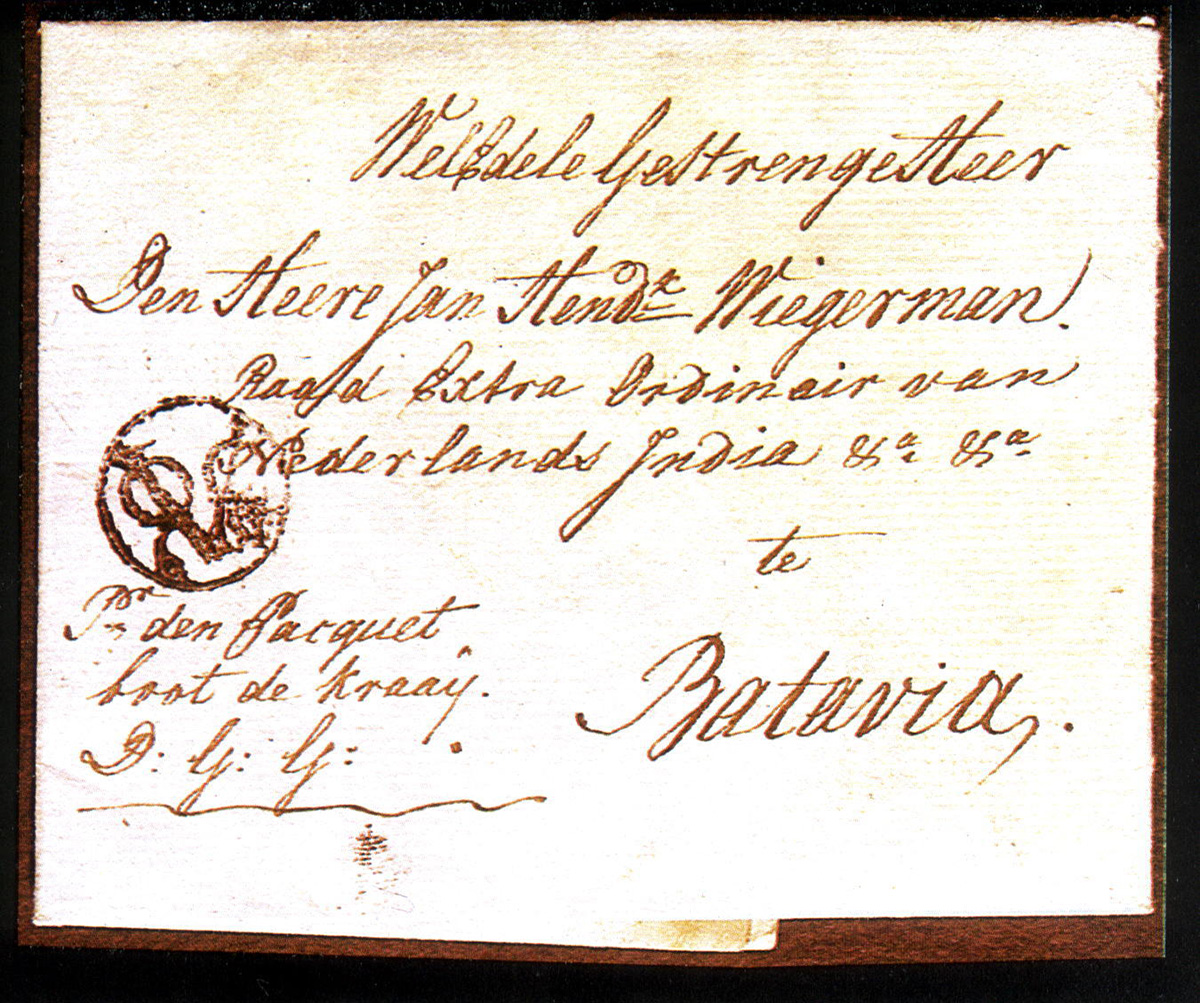 WelEdele Gestrenge Heer
Den Heere Jan Hendk Wiegerman.
Raad Extra Ordinair van
Nederlands India &a &a
te
Pr den Pacquet
boot de Kraaij.
D: G: G:
Batavia.